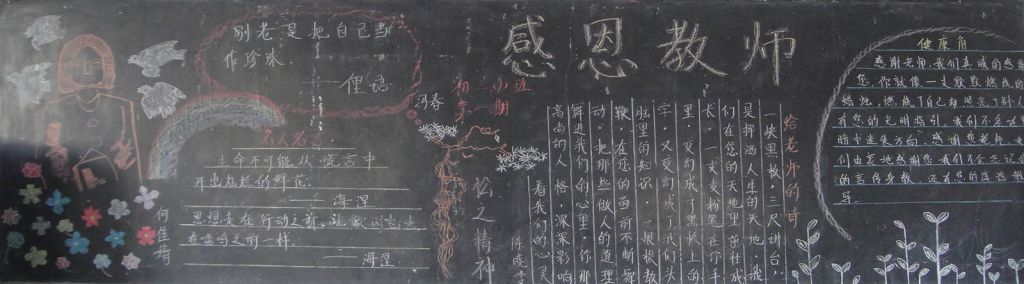 别老是把自己当
作珍珠.
——俚语
感恩教师
初一二班
第一期
冯春
名人名言
生命不可能从谎言中
开出灿烂的鲜花.
——海涅
思想走在行动之前,就像闪电走
在雷鸣之前一样.
——海涅
何佳琦
松之精神
给老师的诗
一块黑板,三尺讲台,
是挥洒人生的天地,我
们在您的天地里茁壮成
长,一支支粉笔在你手
里,变
字,又变幻成了我们头
脑里的知识,一根根教
鞭,在您的面前不断舞
动,把那些做人的道理
舞进我们的心里,你那
高尚的人格,深深影响
着我们的心灵
陈晓
健康角
感谢老师,我们真诚的感谢
您,你就像一支默默燃烧的
蜡烛,燃烧了自己却照亮了别人
有您的光明指引,我们不会在黑
暗中迷失方向,感谢您老师,我
们由衷地感谢您,我们不会忘记您
的言传身教,
导.